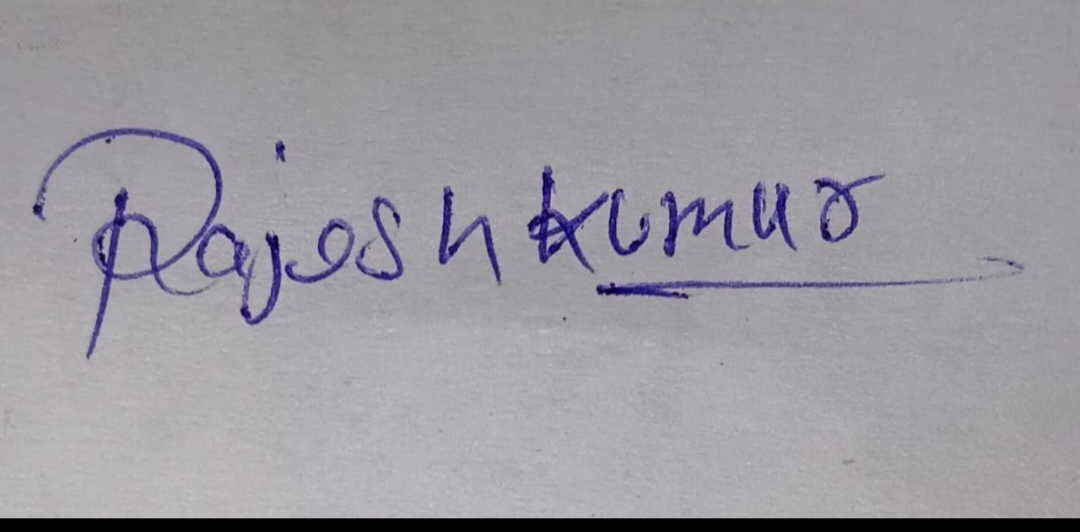 Rajesh kumar